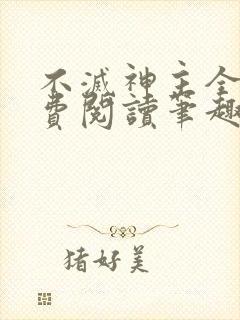 不滅神主全
費閱讀筆趣
豬好美